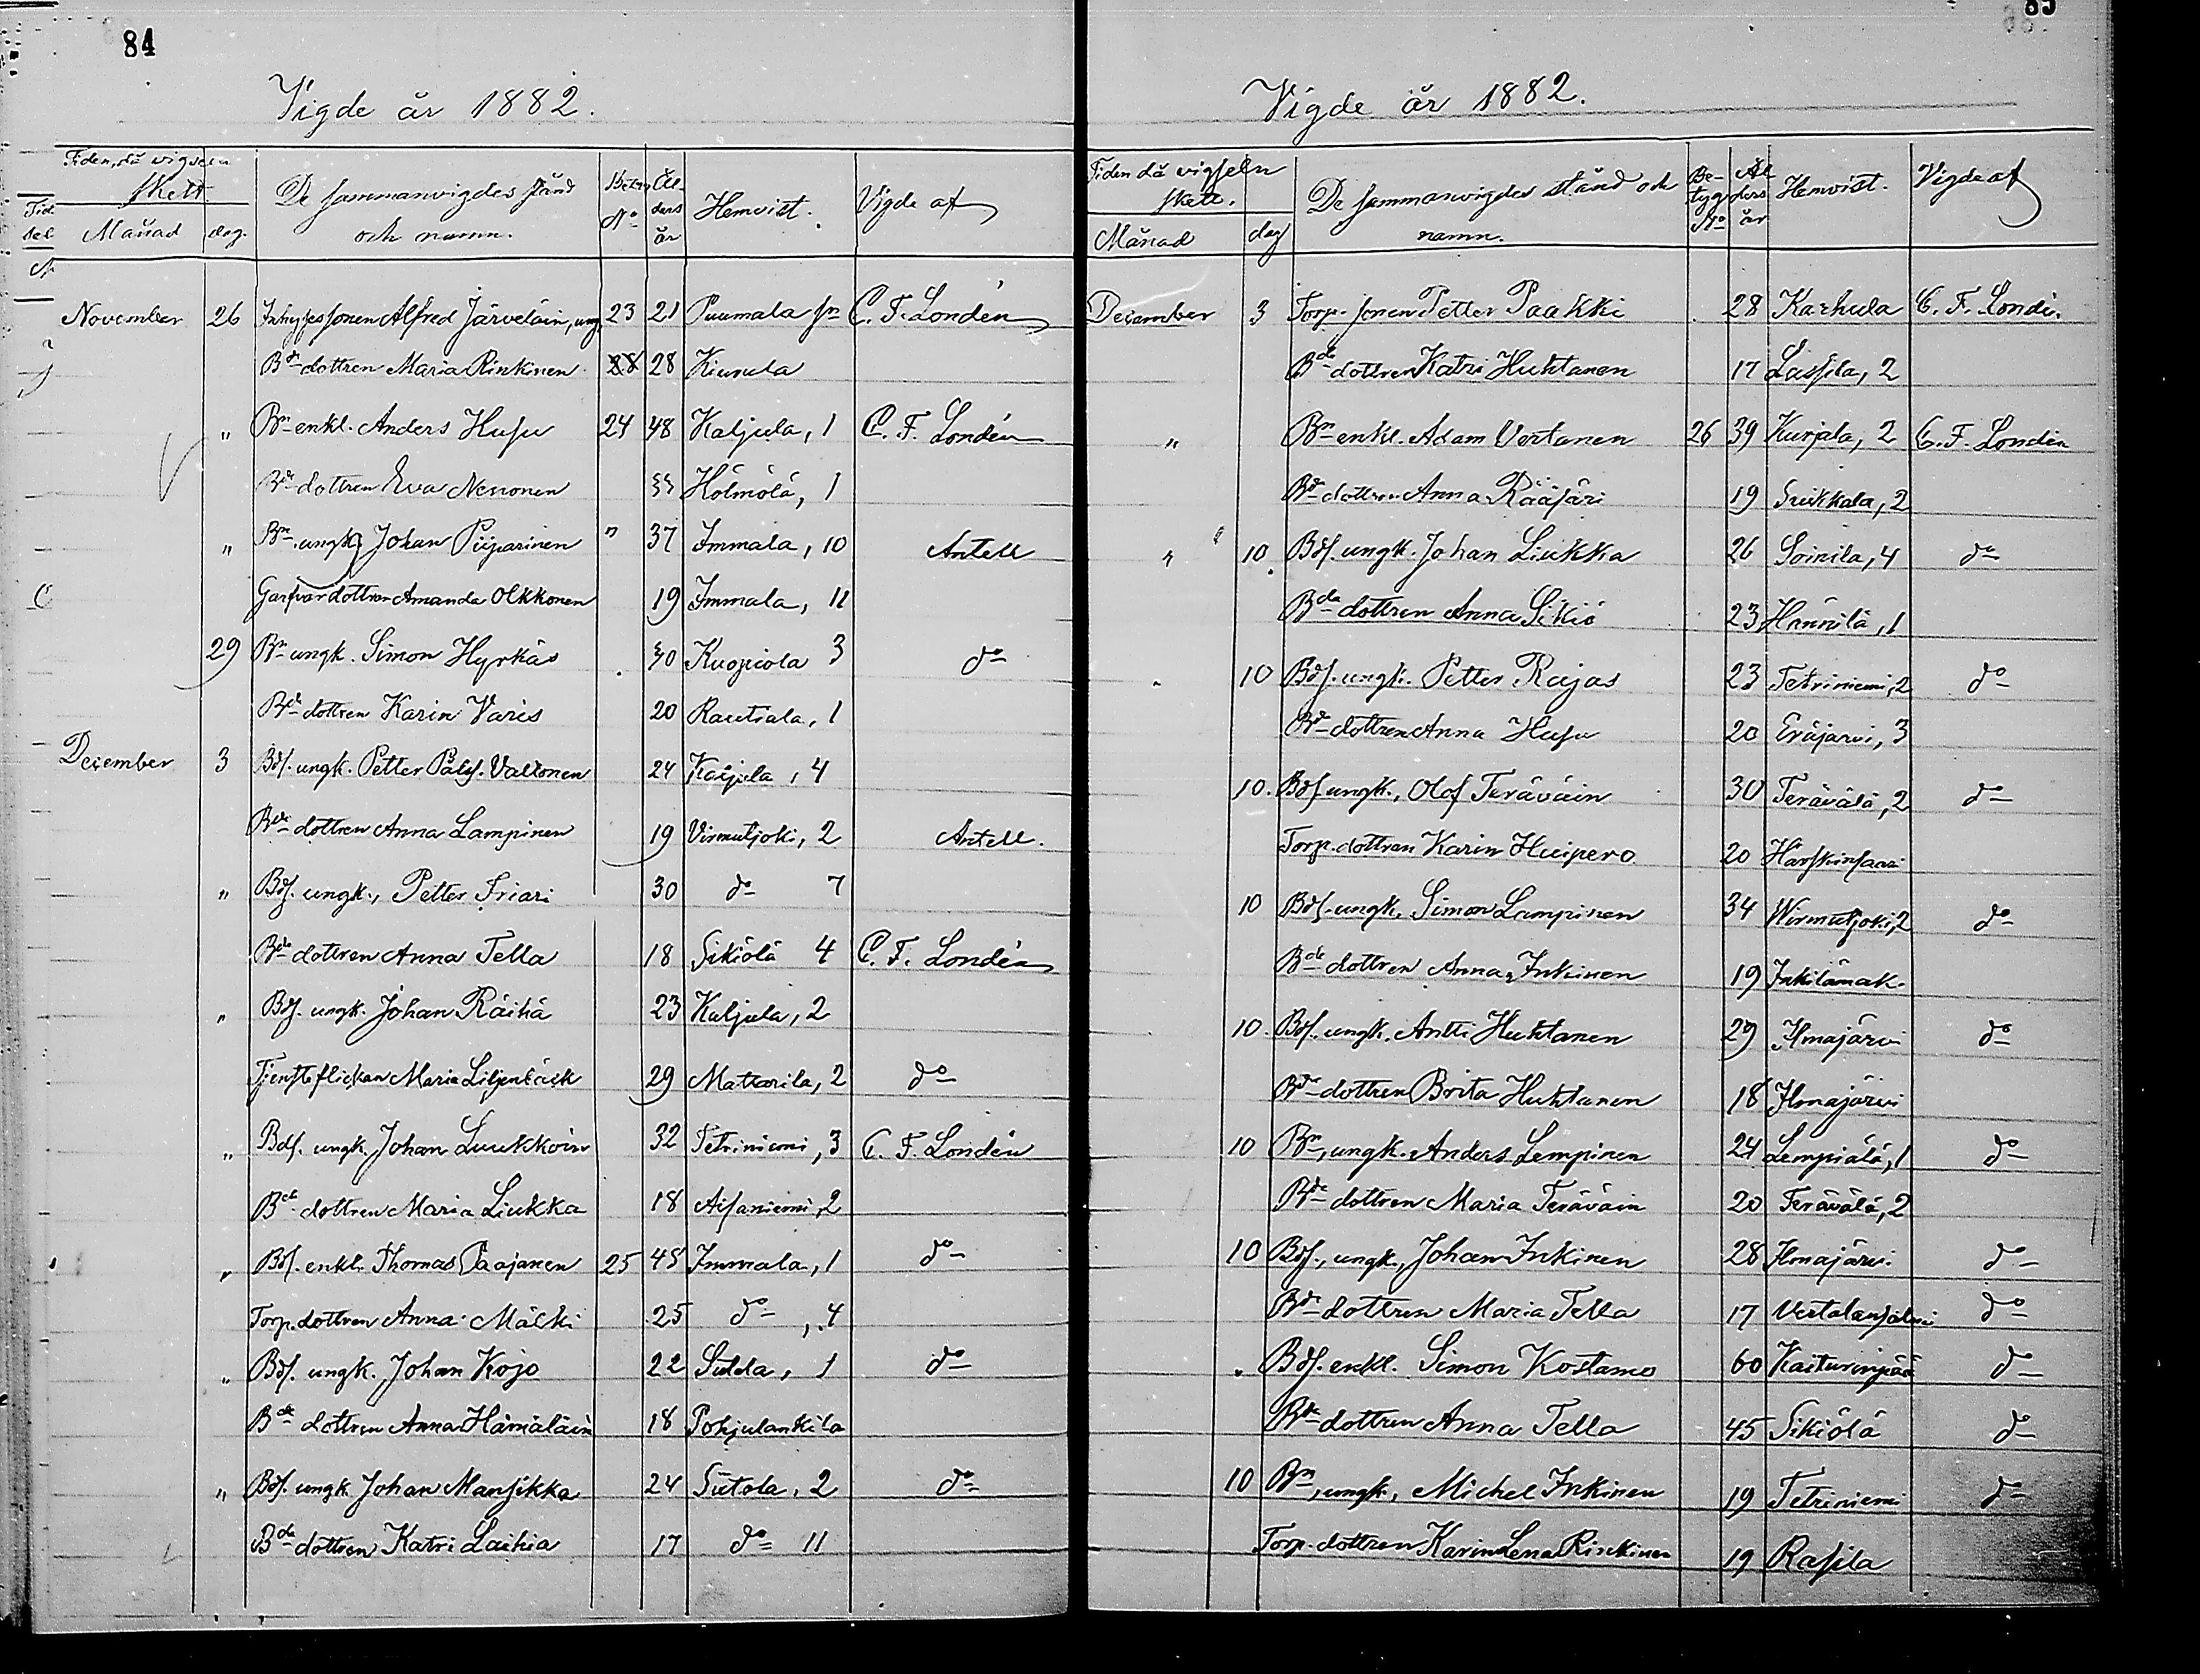 84
Vigde år 1882.
Tiden, då vigseln skett.
De sammanvigdes stånd och namn.
No
Ålders år
Hemvist.
Vigde af
Månad dag.
November 26 Alfred Järveläin, ung 23 21 Puumala sn C. F. Londén
Bde dottren Maria Rinkinen 28 Kiurula
" Bn enkl. Anders Husu 24 48 Kaljula, 1 C. F. Londén
Bde dottren Eva Nenonen Hölmölä, 1
" Bn ungk. Johan Piiparinen " 37 Immala, 10 Antell
dottren Amanda Olkkonen 19 Immala, 11
29 Bn ungk. Simon Hyrkäs 30 Kuopiola 3 do
Bde dottren Karin Varis 20 Rautiala, 1
December 3 Bds. ungk. Petter Valtonen 24 Kaljula, 4
Bde dottren Anna Lampinen 19 Virmutjoki, 2 Antell.
" Bds. ungk., Petter Friari 30 do 7
Bde dottren Anna Tella 18 Sikiölä 4 C. F. Londén
" Bds. ungk. Johan Räihä 23 Kaljula, 2
Tjensteflickan Maria Liljenbäck 29 Matarila, 2 do
" Bds. ungk. Johan Luukkoin 32 Tetriniemi, 3 C. F. Londén
Bde dottren Maria Liukka 18 Aisaniemi, 2
" Bds. enkl. Thomas Paajanen 25 45 Immala, 1 do
Torp. dottren Anna Mälki 25 do, 4
" Bds. ungk. Johan Kojo 22 Sulda, 1 do
Bde dottren Anna Hämäläin 18 Pohjulankila
" Bds. ungk. Johan Mansikka 24 Siitola, 2 do
Bde dottren Katri Laihia 17 do 11
85
Vigde år 1882.
Tiden då vigseln skett.
De sammanvigdes stånd och namn.
Betyg No
Ålders år
Hemvist.
Vigde af
Månad dag
December 3 Torp. sonen Petter Paakki 28 Karhula C. F. Londén
Bde dottren Katri Huhtanen 17 Lassila, 2
" Bn enkl. Adam Vertanen 26 39 Kurjala, 2 C. F. Londén
Bde dottren Anna Rääsäri 19 Suikkala, 2
" 10 Bds. ungk. Johan Liukka 26 Soinila, 4 do
Bde dottren Anna Sikiö 23 Hännilä, 1
" 10 Bds. ungk. Petter Rajas 23 Tetriniemi, 2 do
Bde dottren Anna Husu 20 Eräjarvi, 3
10. Bds ungk., Olof Teräväin 30 Terävälä, 2 do
Torp. dottren Karin Huipero 20 Härskinsaari
10 Bds. ungk. Simon Lampinen 34 Wirmutjoki, 2 do
Bde dottren Anna Inkinen 19 Inkilämäk.
10. Bds. ungk. Antti Huhtanen 29 Ilmajärvi do
Bde dottren Brita Huhtanen 18 Ilmajärvi
10 Bn, ungk. Anders Lempinen 24 Lempiälä, 1 do
Bde dottren Maria Teräväin 20 Terävälä, 2
10 Bds., ungk., Johan Inkinen 28 Ilmajärvi do
Bde dottren Maria Tella 17 do
" Bds. enkl. Simon Kostamo 60 Kaiturinpää do
Bde dottren Anna Tella 45 Sikiölä do
10 Bn, ungk., Michel Inkinen 19 Tetriniemi do
Torp. dottren Karin Lena Rinkinen 19 Rasila